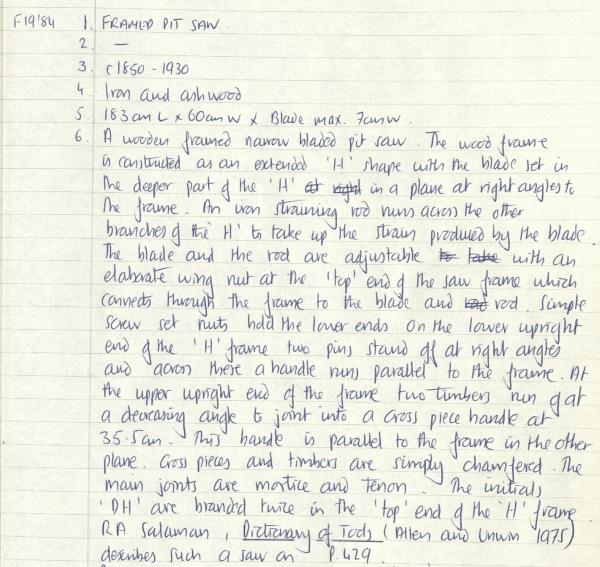 F19'84 1. FRAMED PIT SAW.
2. —
3. c1850 - 1930
4. Iron and ashwood
5. 183cm L x 60cm W x Blade max. 7cm W.
6. A wooden framed narrow bladed pit saw. The wood frame
is constructed as an extended 'H' shape with the blade set in
the deeper part of the 'H' at right in a plane at right angles to
the frame. An iron straining rod runs across the other
branches of the 'H' to take up the strain produced by the blade.
The blade and the rod are adjustable to take with an
elaborate wing nut at the 'top' end of the saw frame which
connects through the frame to the blade and rod rod. Simple
screw set nuts hold the lower ends. On the lower upright
end of the 'H' frame two pins stand off at right angles
and across these a handle runs parallel to the frame. At
the upper upright end of the frame two timbers run off at
a decreasing angle to joint into a cross piece handle at
35.5cm. This handle is parallel to the frame in the other
plane. Cross pieces and timbers are simply chamfered. The
main joints are mortice and tenon. The initials
'DH' are branded twice in the 'top' end of the 'H' frame
RA Salaman, Dictionary of Tools (Allen and Unwin 1975)
describes such a saw on P.429.